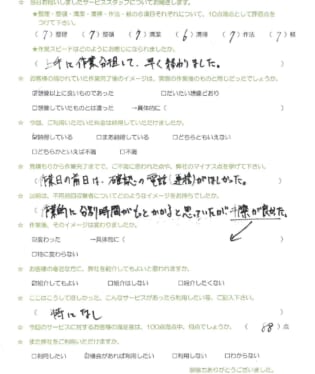 ☆ 当日お伺いしましたサービススタッフについてお聞きします。
★整理・整頓・清潔・作法・躾の各項目それぞれについて、10点満点として評価点をつけて下さい。
(7)整理 (7)整頓 (7)清潔 (6) (7)作法 (7)躾
★作業スピードはどのようにお感じになられましたか。
(上手に作業分担して、早く終わりました。)
☆ お客様の描かれていた作業完了後のイメージは、実際の作業後のものと同じでしたでしょうか。
☑想像以上に良いものであった □だいたい想像どおり
□想像していたものとは違った →具体的に( )
☆ 今回、ご利用いただいた料金は納得していただけましたか。
☑納得している □まあ納得している □どちらともいえない
□どちらかといえば不満 □不満
☆ 見積もりから作業完了までで、ご不満に思われた点や、弊社のマイナス点を挙げて下さい。
(作業日の前日は、確認の電話(連絡)がほしかった。)
☆ 以前は、不用品回収業者についてどのようなイメージをお持ちでしたか。
(作業的に分別時間がもとかかると思っていたが手際が良かった。)
☆ 作業後、そのイメージは変わりましたか。
☑変わった →具体的に( )
□特に変わらない
☆ お客様の身近な方に、弊社を紹介してもよいと思われますか。
☑紹介してもよい □紹介はしない □紹介したくない
☆ ここはこうして欲しかった、こんなサービスがあったら利用したい等、ご記入下さい。
(特になし)
☆ 今回のサービスに対するお客様の満足度は、100点満点中、何点でしょうか。(88)点
☆ また弊社をご利用いただけますか。
□利用したい ☑機会があれば利用したい □利用しない □わからない
御協力ありがとうございました。